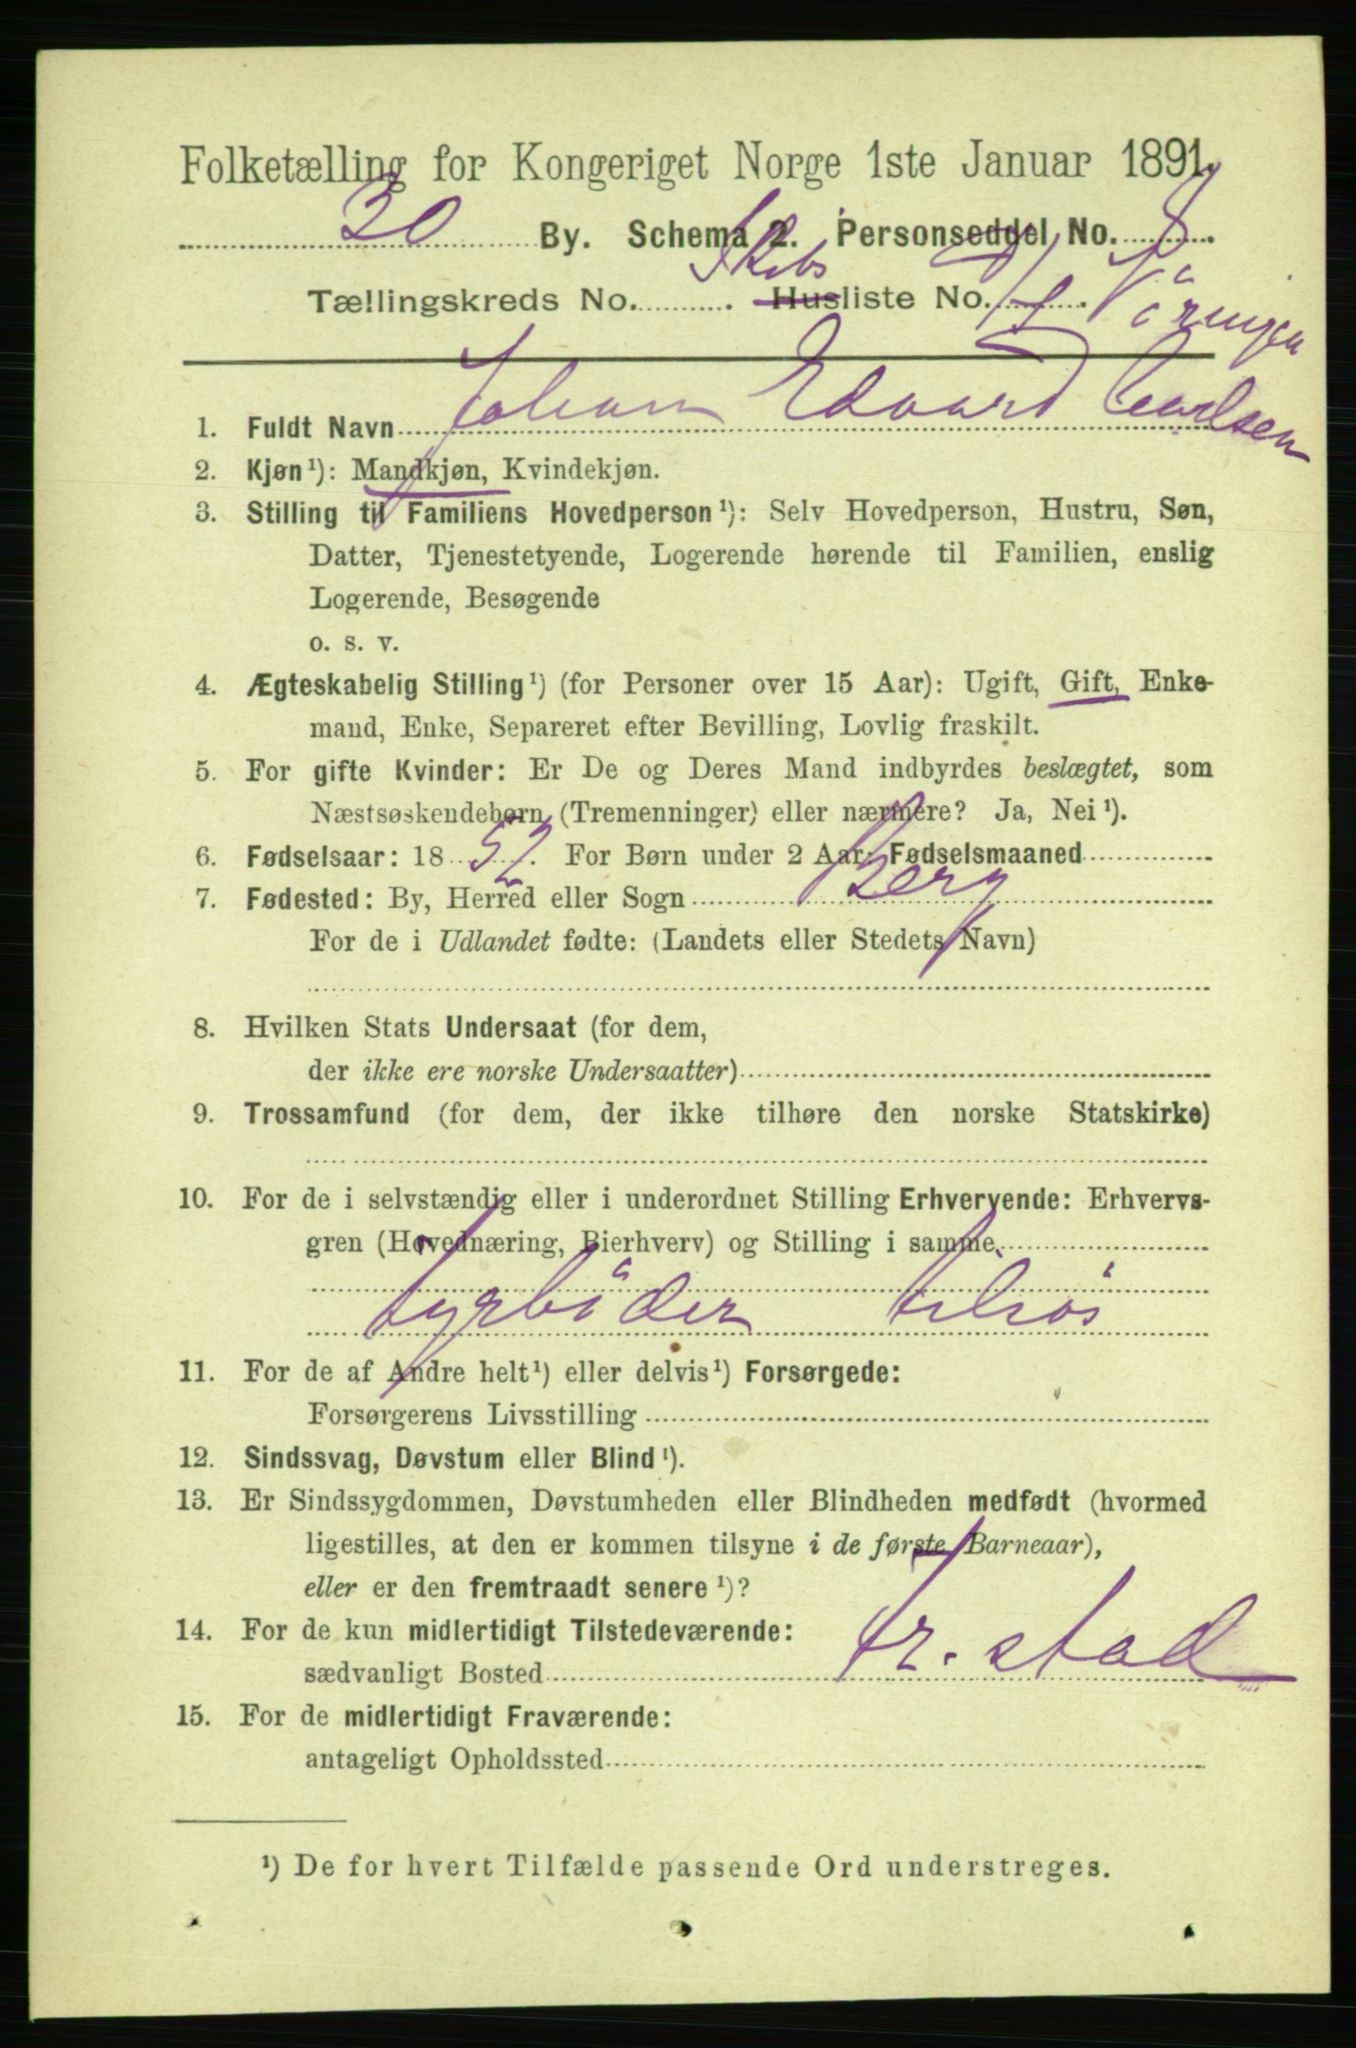 Folketælling for Kongeriget Norge 1ste Januar 1891.
30 By. Schema 2. Personseddel No. 8.
Tællingskreds No. . Skibs Husliste No. 71 Væringen
1. Fuldt Navn Johan Edvard Carlsen
2. Kjøn¹): Mandkjøn, Kvindekjøn.
3. Stilling til Familiens Hovedperson¹): Selv Hovedperson, Hustru, Søn,
Datter, Tjenestetyende, Logerende hørende til Familien, enslig
Logerende, Besøgende
o. s. v.
4. Ægteskabelig Stilling¹) (for Personer over 15 Aar): Ugift, Gift, Enke-
mand, Enke, Separeret efter Bevilling, Lovlig fraskilt.
5. For gifte Kvinder: Er De og Deres Mand indbyrdes beslægtet, som
Næstsøskendebørn (Tremenninger) eller nærmere? Ja, Nei¹).
6. Fødselsaar: 18 52. For Børn under 2 Aar: Fødselsmaaned
7. Fødested: By, Herred eller Sogn Berg
For de i Udlandet fødte: (Landets eller Stedets Navn)
8. Hvilken Stats Undersaat (for dem,
der ikke ere norske Undersaatter)
9. Trossamfund (for dem, der ikke tilhøre den norske Statskirke)
10. For de i selvstændig eller i underordnet Stilling Erhvervende: Erhvervs-
gren (Hovednæring, Bierhverv) og Stilling i samme.
fyrböder tilsös
11. For de af Andre helt¹) eller delvis¹) Forsørgede:
Forsørgerens Livsstilling
12. Sindssvag, Døvstum eller Blind¹).
13. Er Sindssygdommen, Døvstumheden eller Blindheden medfødt (hvormed
ligestilles, at den er kommen tilsyne i de første Barneaar),
eller er den fremtraadt senere¹)?
14. For de kun midlertidigt Tilstedeværende:
sædvanligt Bosted fr. stad
15. For de midlertidigt Fraværende:
antageligt Opholdssted
¹) De for hvert Tilfælde passende Ord understreges.